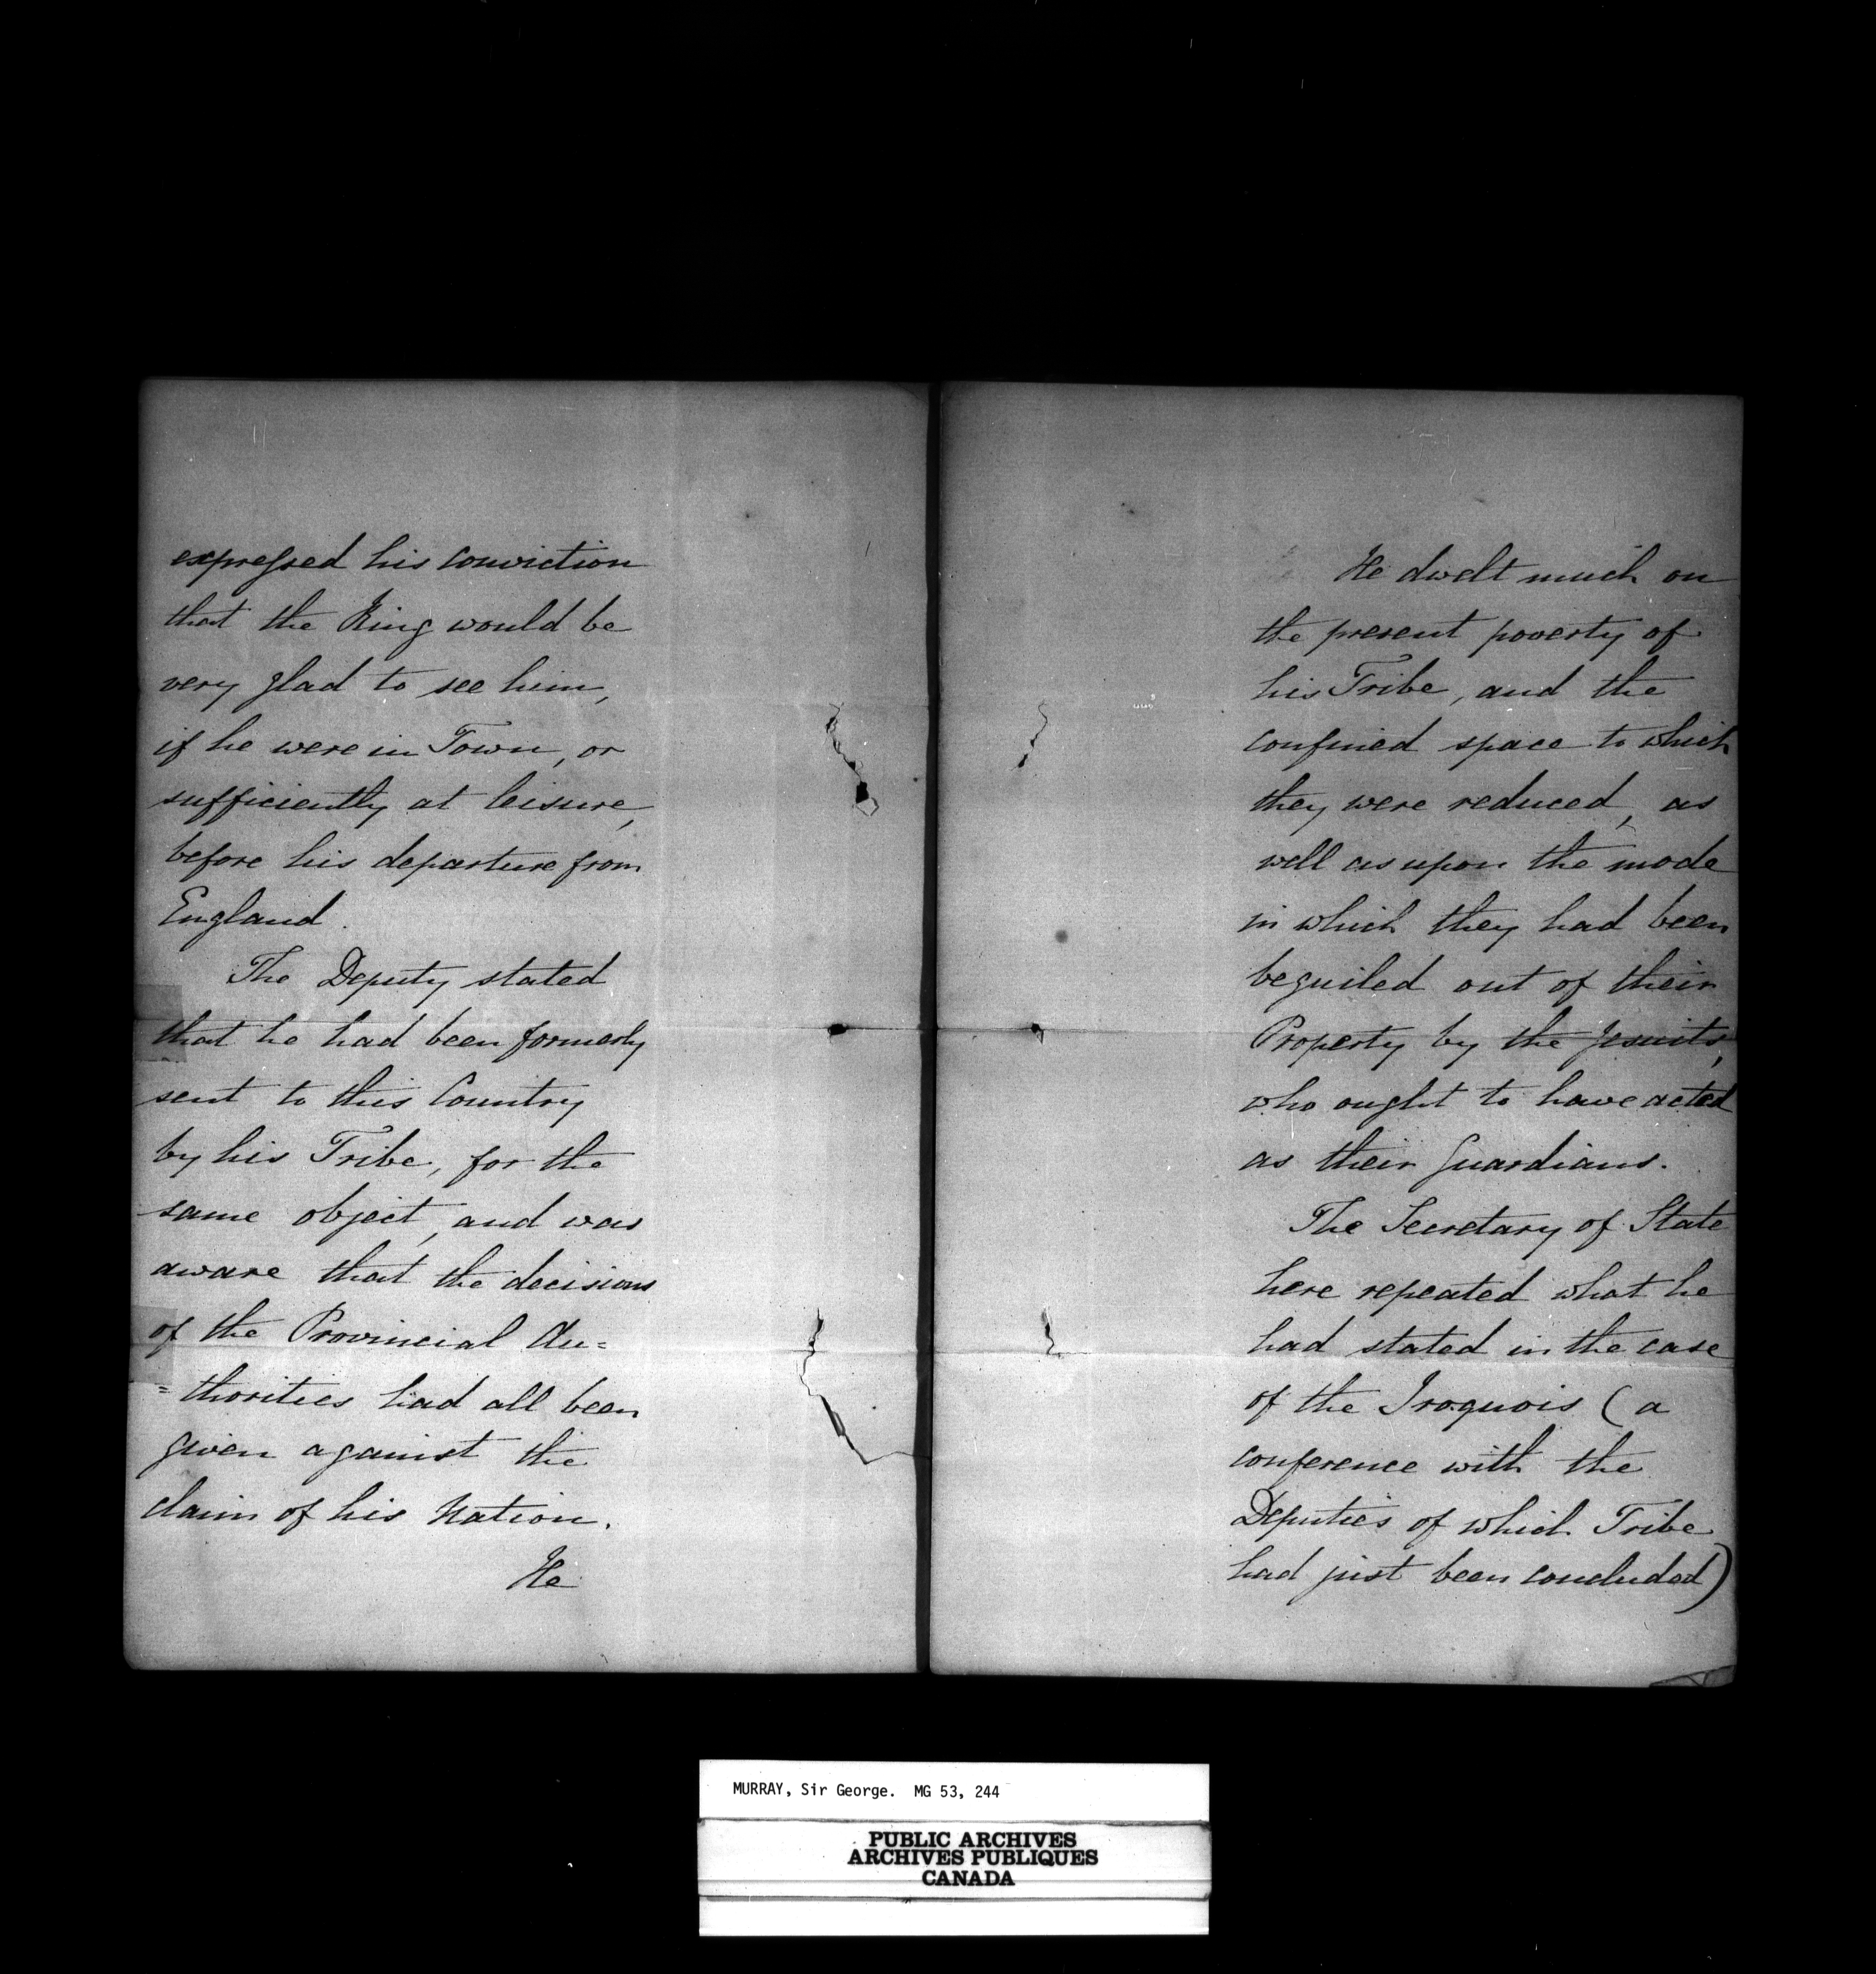 expressed his conviction
that the King would be
very glad to see him,
if he were in Town, or
sufficiently at leisure,
before his departure from
England.
The Deputy stated
that he had been formerly
sent to this Country
by his Tribe, for the
same object, and was
aware that the decisions
of the Provincial Au=
=thorities had all been
given against the
claim of his Nation.
He
He dwelt much on
the present poverty of
his Tribe, and the
confined space to which
they were reduced, as
well as upon the mode
in which they had been
beguiled out of their
Property by the Jesuits,
who ought to have acted
as their Guardians.
The Secretary of State
here repeated what he
had stated in the case
of the Iroquois (a
conference with the
Deputies of which Tribe
had just been concluded)
MURRAY, Sir George. MG 53, 244
PUBLIC ARCHIVES
ARCHIVES PUBLIQUES
CANADA